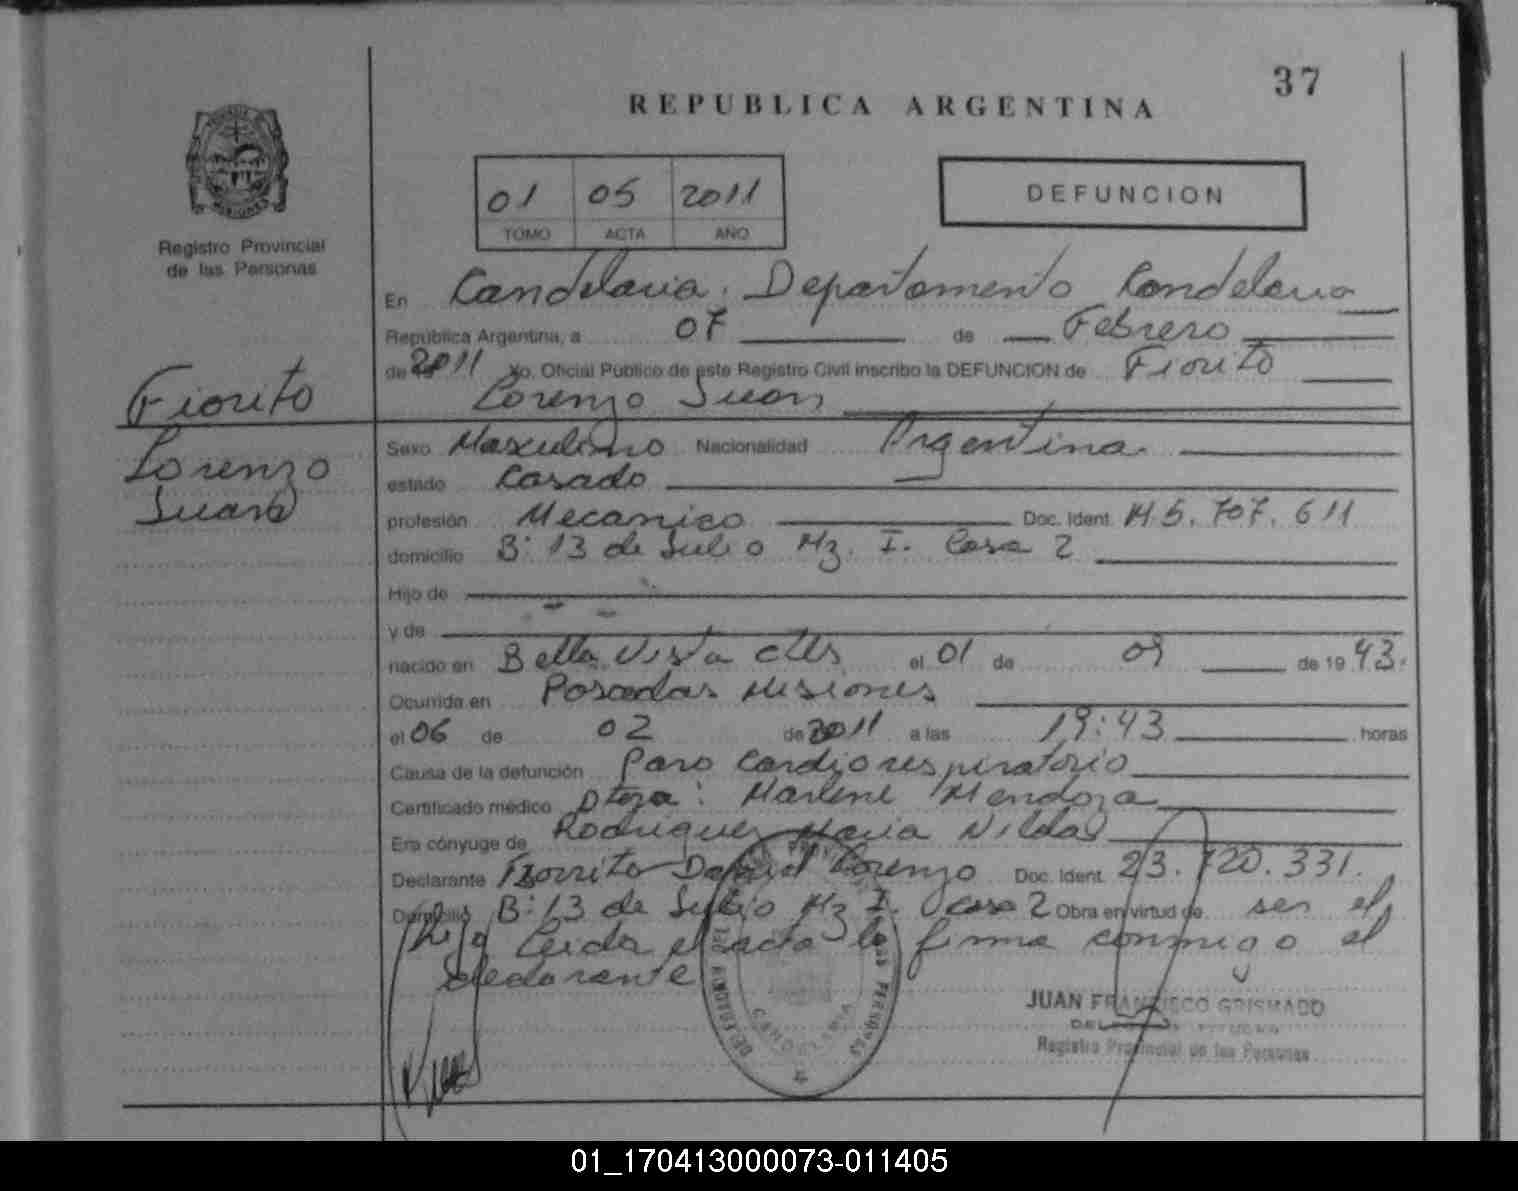 37
REPUBLICA ARGENTINA
01 05 2011
TOMO ACTA AÑO
DEFUNCION
MISIONES
Registro Provincial
de las Personas
En Candelaria. Departamento Candelaria
República Argentina, a 07 de Febrero
de 2011 Yo, Oficial Público de este Registro Civil inscribo la DEFUNCION de Fiorito
Lorenzo Juan
Fiorito
Lorenzo
Juan
Sexo Masculino Nacionalidad Argentina
estado Casado
profesión Mecanico Doc. Ident. M.5.707.611
domicilio B: 13 de Julio Mz. I. Casa 2
Hijo de
y de
nacido en Bella Vista ctes el 01 de 09 de 19 43.
Ocurrida en Posadas Misiones
el 06 de 02 de 2011 a las 19:43 horas
Causa de la defunción Paro Cardiorespiratorio
Certificado médico Dtora: Marlene Mendoza
Era cónyuge de Rodriguez Maria Nilda
Declarante Fiorrito David Lorenzo Doc. Ident. 23.720.331.
Domicilio B: 13 de Julio Mz I. casa 2 Obra en virtud de ser el
hijo Leida el acta la firma conmigo el
declarante
DELEGACION
CANDELARIA
LAS PERSONAS
JUAN FRANCISCO GRISMADO
Registro Provincial de las Personas
01_170413000073-011405